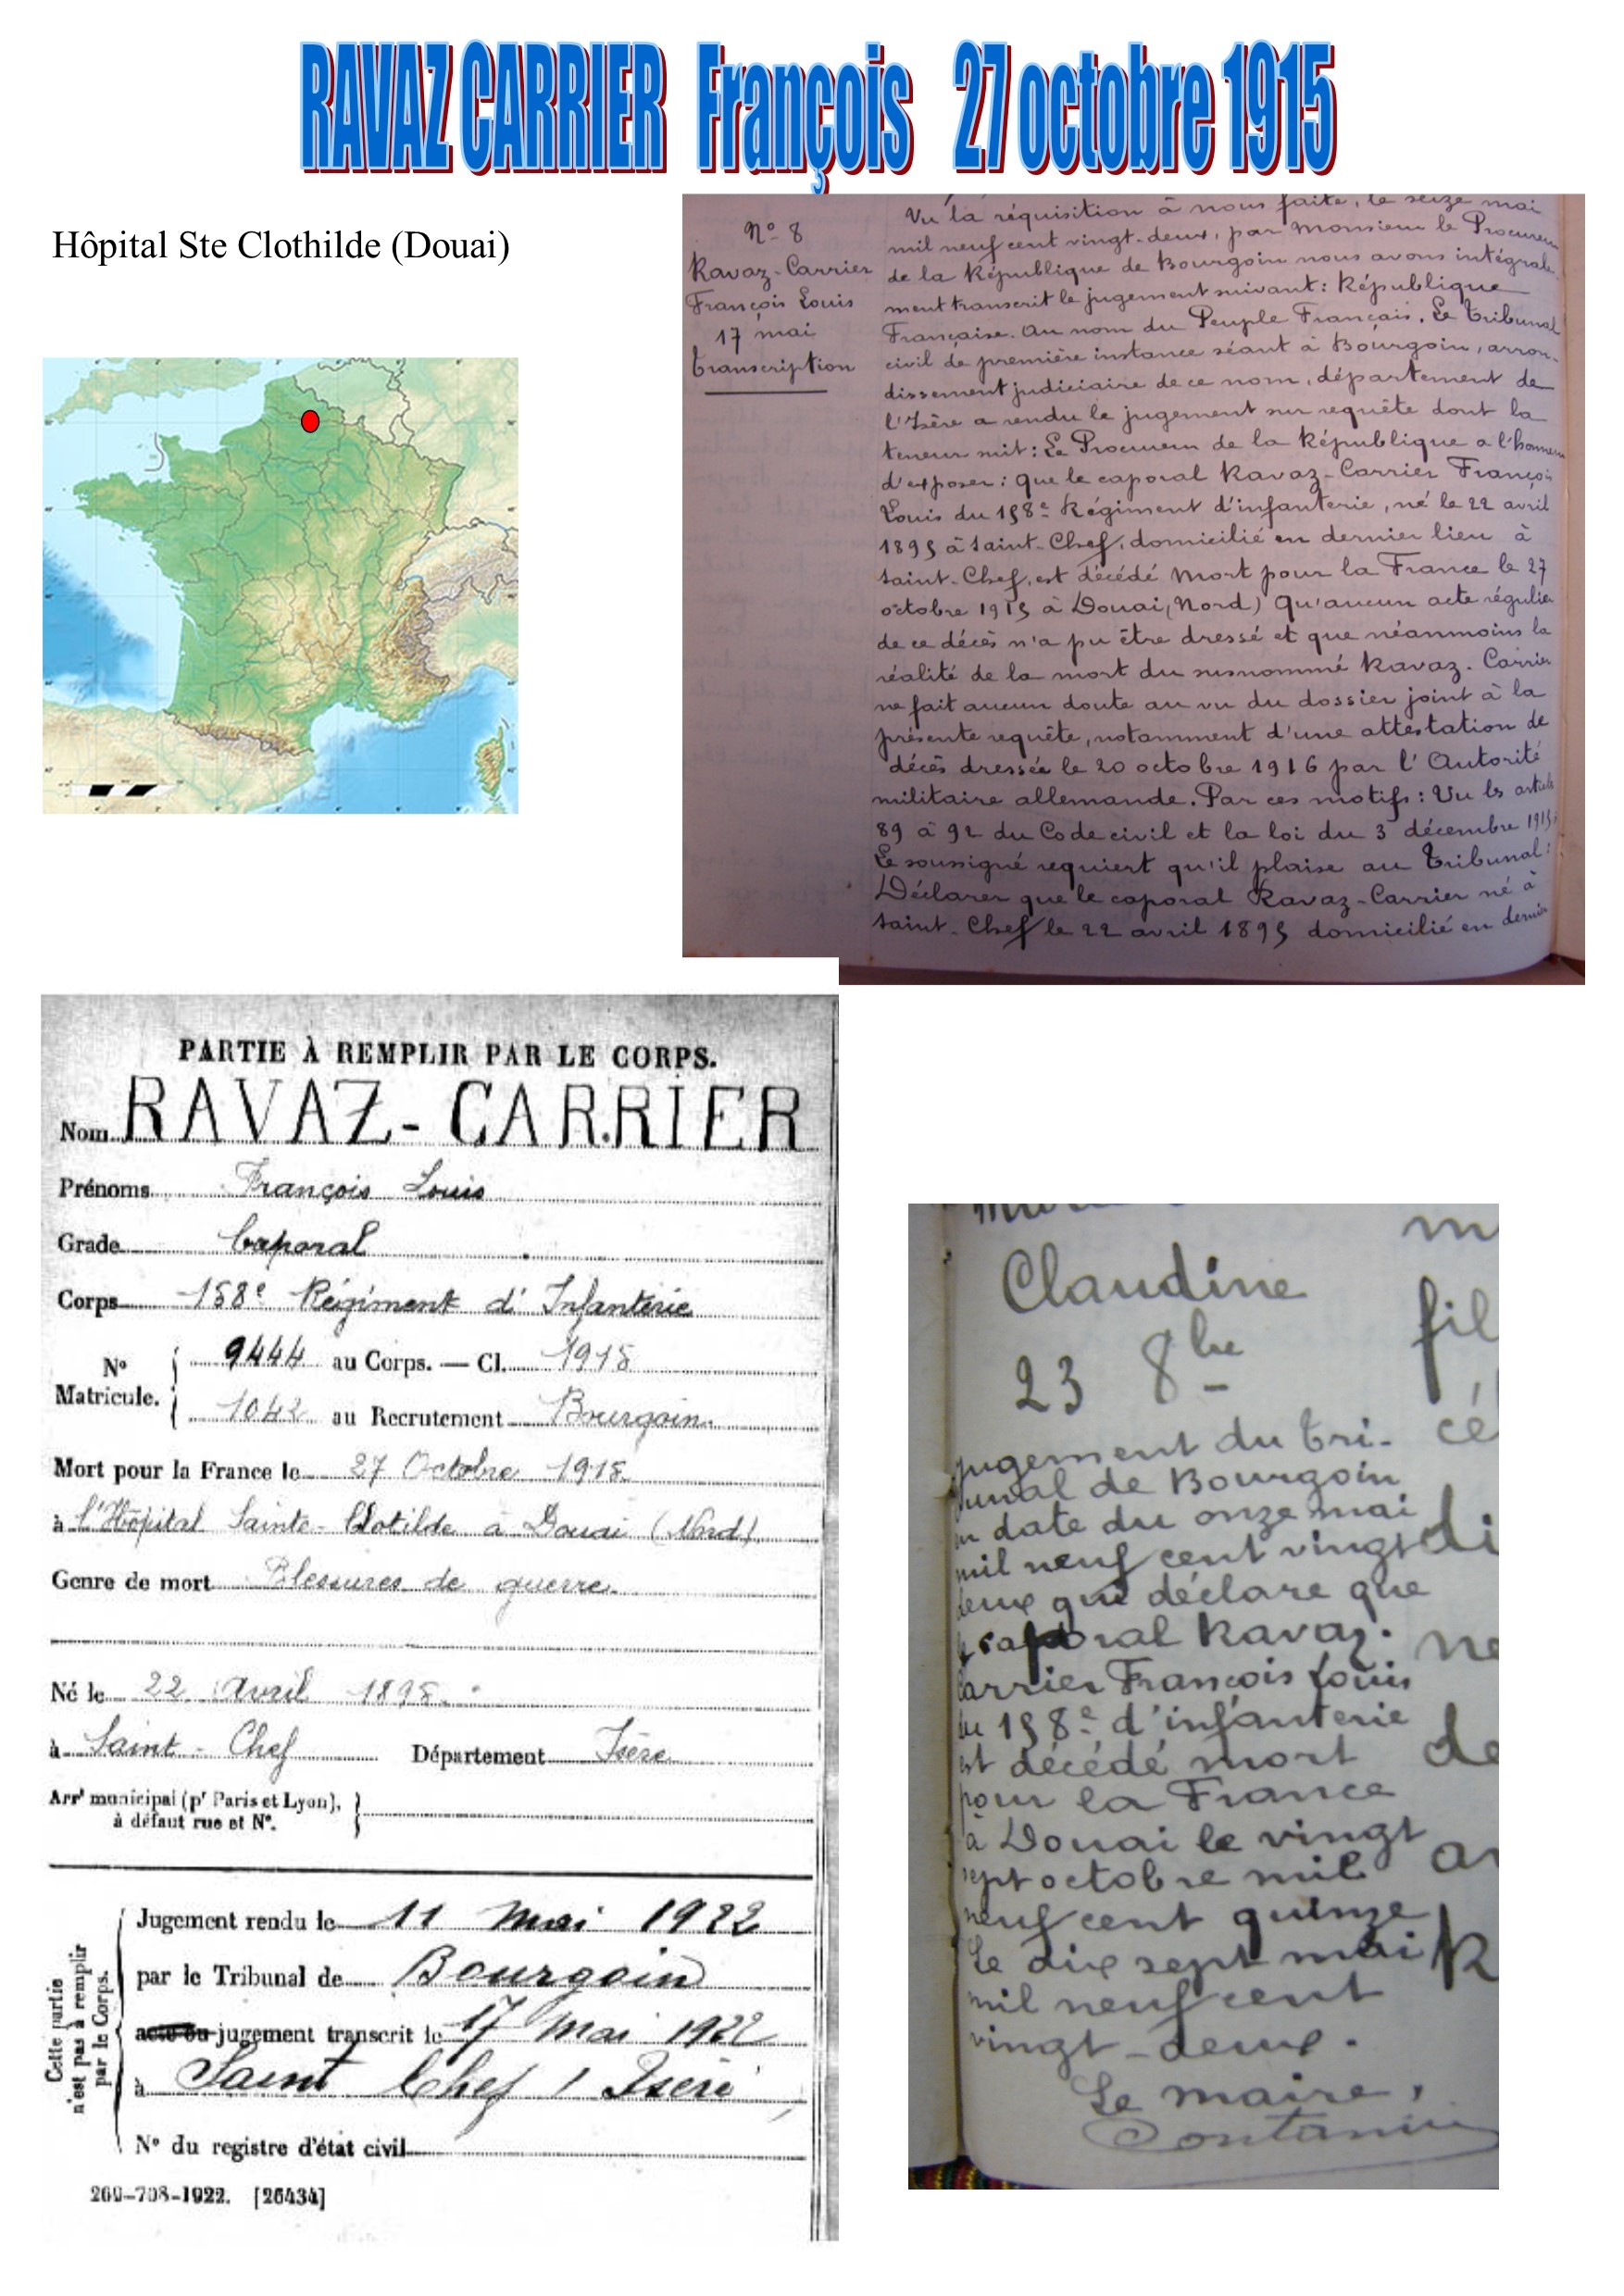 RAVAZ CARRIER François 27 octobre 1915
Hôpital Ste Clothilde (Douai)
N° 8
Ravaz-Carrier
François Louis
17 mai
Transcription
Vu la réquisition à nous faite, le seize mai
mil neuf cent vingt-deux, par Monsieur le Procureur
de la République de Bourgoin nous avons intégrale-
ment transcrit le jugement suivant : République
Française. Au nom du Peuple Français. Le Tribunal
civil de première instance séant à Bourgoin, arron-
dissement judiciaire de ce nom, département de
l'Isère a rendu le jugement sur requête dont la
teneur suit : Le Procureur de la République a l'honneur
d'exposer : que le caporal Ravaz-Carrier François
Louis du 158e Régiment d'infanterie, né le 22 avril
1895 à Saint-Chef, domicilié en dernier lieu à
Saint-Chef, est décédé Mort pour la France le 27
octobre 1915 à Douai (Nord) Qu'aucun acte régulier
de ce décès n'a pu être dressé et que néanmoins la
réalité de la mort du susnommé Ravaz-Carrier
ne fait aucun doute au vu du dossier joint à la
présente requête, notamment d'une attestation de
décès dressée le 20 octobre 1916 par l'Autorité
militaire allemande. Par ces motifs : Vu les articles
89 à 92 du Code civil et la loi du 3 décembre 1915
Le soussigné requiert qu'il plaise au Tribunal :
Déclarer que le caporal Ravaz-Carrier né à
Saint-Chef le 22 avril 1895 domicilié en dernier
PARTIE À REMPLIR PAR LE CORPS.
Nom RAVAZ-CARRIER
Prénoms François Louis
Grade Caporal
Corps 158e Régiment d'Infanterie
N° Matricule. 9444 au Corps. — Cl. 1915
1042 au Recrutement Bourgoin
Mort pour la France le 27 Octobre 1915
à l'Hôpital Sainte-Clotilde à Douai (Nord)
Genre de mort Blessures de guerre
Né le 22 Avril 1895
à Saint-Chef Département Isère
Arrt municipal (pr Paris et Lyon),
à défaut rue et N°.
Cette partie
n'est pas à remplir
par le Corps.
Jugement rendu le 11 Mai 1922
par le Tribunal de Bourgoin
acte ou jugement transcrit le 17 Mai 1922
à Saint Chef / Isère
N° du registre d'état civil
269-708-1922. [26434]
Claudine
23 8bre
jugement du tri-
bunal de Bourgoin
en date du onze mai
mil neuf cent vingt
deux qui déclare que
le caporal Ravaz-
Carrier François Louis
du 158e d'infanterie
est décédé mort
pour la France
à Douai le vingt
sept octobre mil
neuf cent quinze
Le dix sept mai
mil neuf cent
vingt-deux.
Le maire,
m
fil
cé
di
ne
de